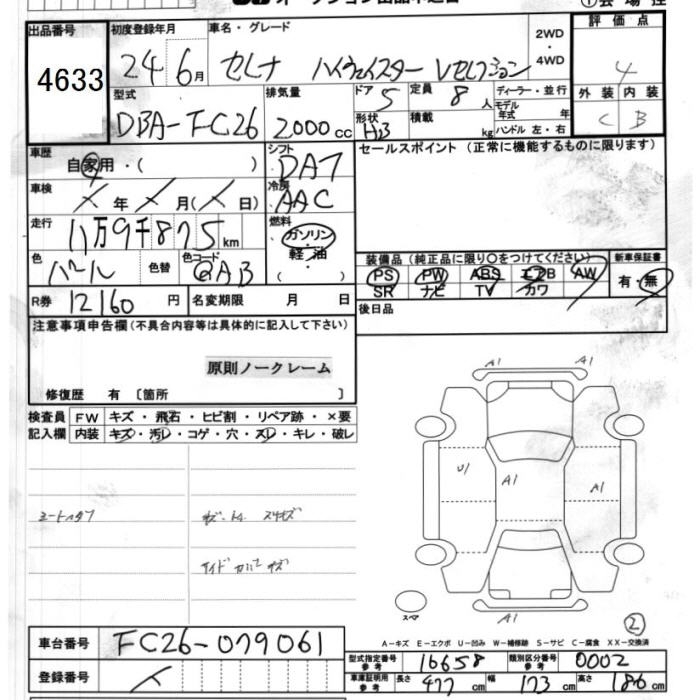 オークション出品申込書
①会場控
出品番号
4633
初度登録年月
24 6月
車名・グレード
セレナ ハイウェイスター Vセレクション
2WD・4WD
評価点
4
外装 内装
C B
型式
DBA-FC26
排気量
2000cc
ドア 5
形状 HB
定員 8人
積載 kg
ディーラー・並行
モデル年式 年
ハンドル 左・右
車歴
自家用・( )
シフト
DAT
セールスポイント (正常に機能するものに限ります)
車検
年 月( 日)
冷房
AAC
走行
11万9千875km
燃料
ガソリン
軽・油
・( )
色
パール
色替
色コード
QAB
装備品 (純正品に限り○をつけてください)
新車保証書
PS PW ABS エアB AW
SR ナビ TV カワ
有・無
R券 12160円
名変期限 月 日
後日品
注意事項申告欄(不具合内容等は具体的に記入して下さい)
原則ノークレーム
修復歴 有 〔箇所 〕
検査員記入欄
FW キズ・飛石・ヒビ割・リペア跡・×要
内装 キズ・汚レ・コゲ・穴・スレ・キレ・破レ
A1 A1
U1 A1 A1
スペア
A1
②
A-キズ E-エクボ U-凹み W-補修跡 S-サビ C-腐食 XX-交換済
車台番号 FC26-079061
登録番号
型式指定番号参考 16658
類別区分番号参考 0002
車庫証明用参考 長さ 477cm 幅 173cm 高さ 186cm